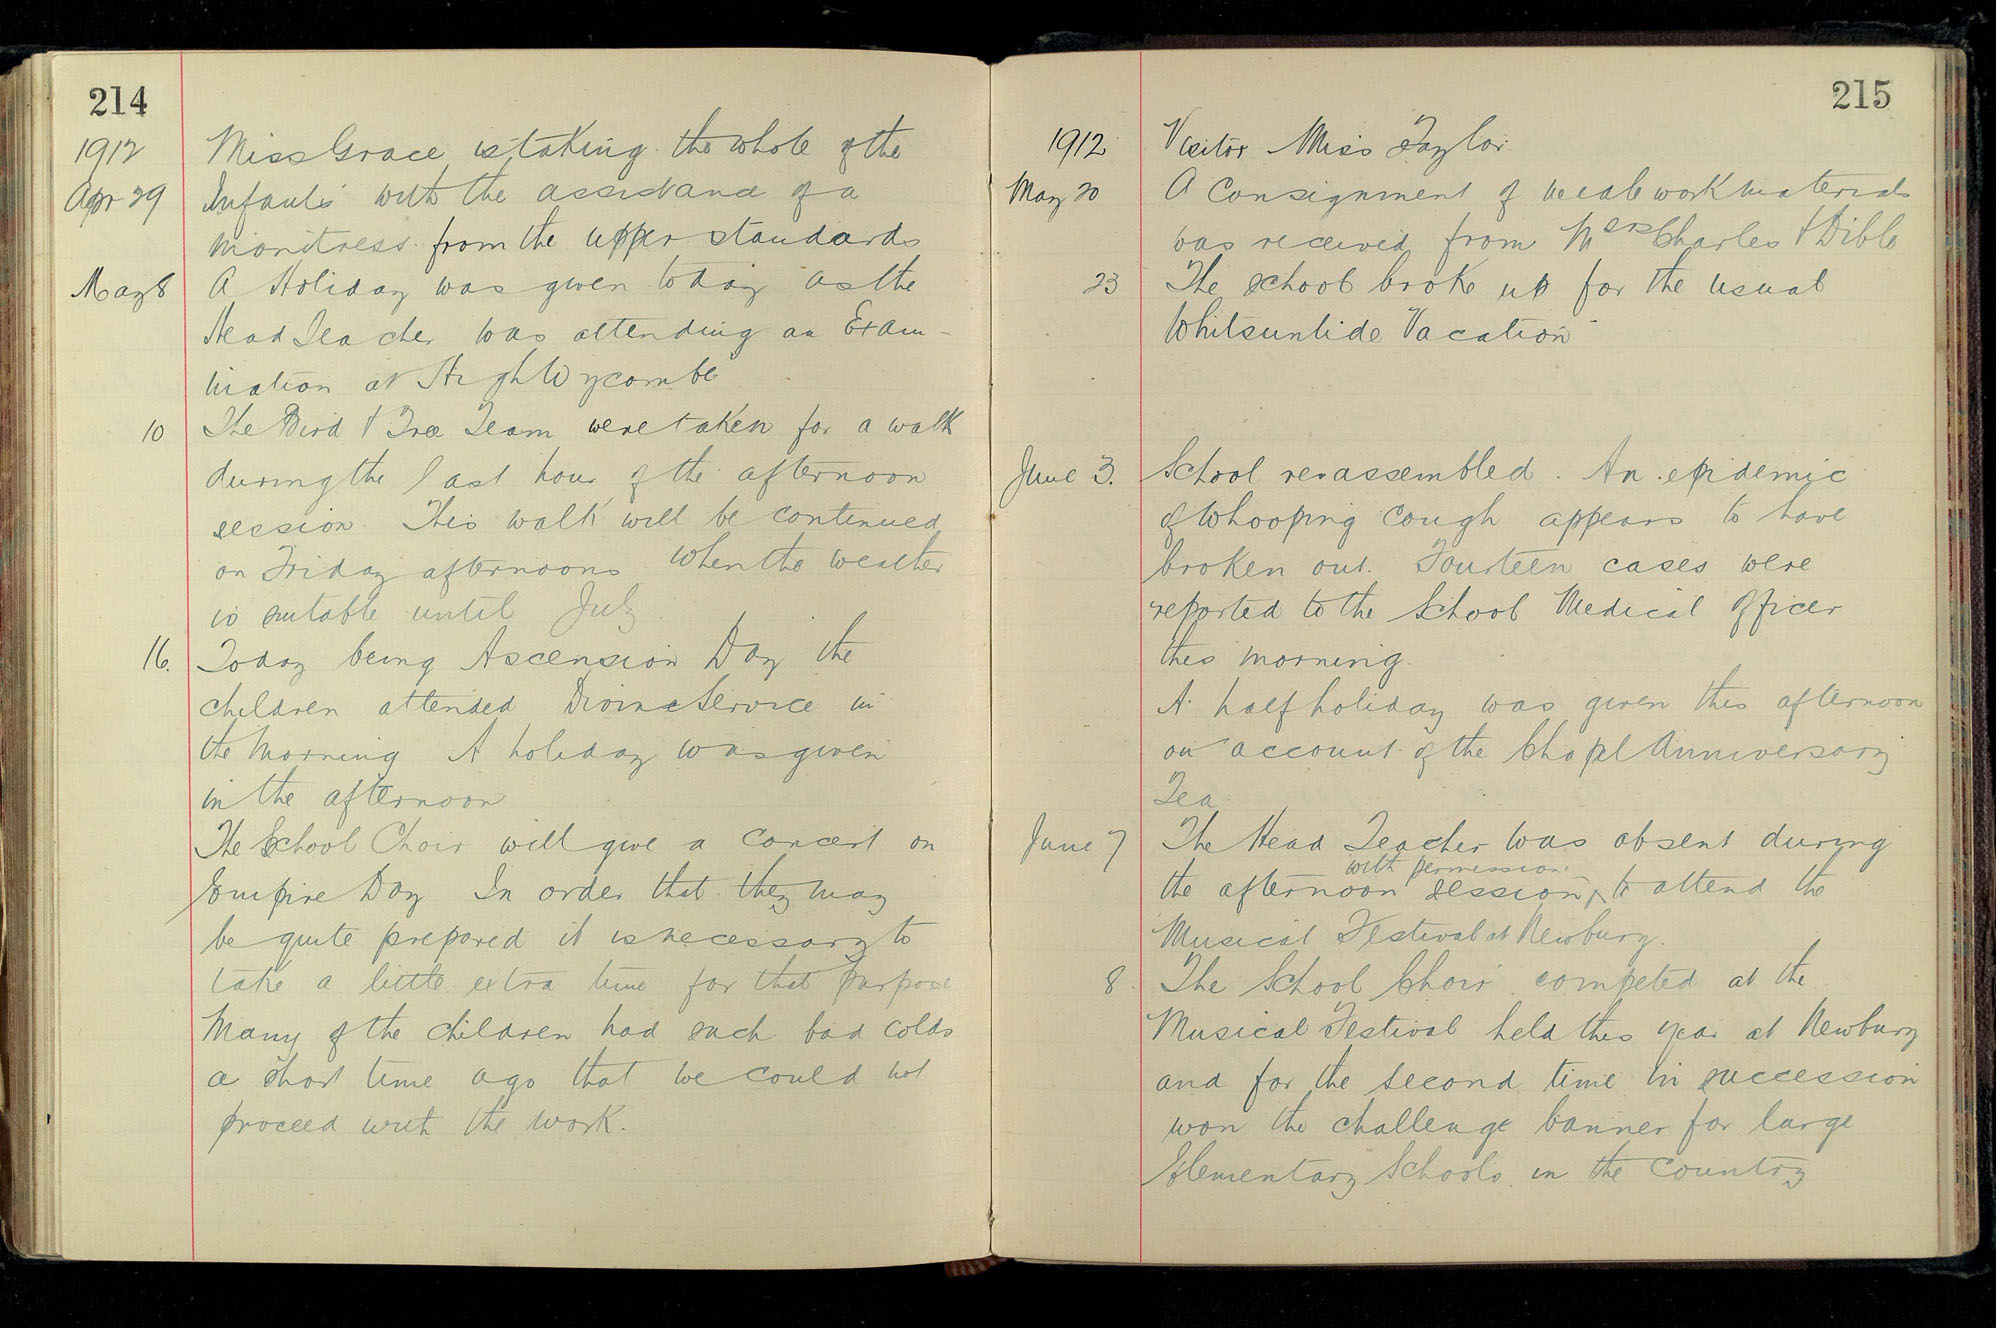 214
1912 Miss Grace is taking the whole of the
Apr 29 Infants with the assistance of a
monitress from the upper standards
May 8 A Holiday was given today as the
Head Teacher was attending an Exam-
ination at High Wycombe
10 The Bird & Tree Team were taken for a walk
during the last hour of the afternoon
session. This walk will be continued
on Friday afternoons when the weather
is suitable until July.
16. Today being Ascension Day the
children attended Divine Service in
the morning A holiday was given
in the afternoon
The School Choir will give a concert on
Empire Day In order that they may
be quite prepared it is necessary to
take a little extra time for that purpose
Many of the children had such bad colds
a short time ago that we could not
proceed with the work.
215
1912 Visitor Miss Taylor
May 20 A consignment of needlework materials
was received from Mess Charles & Dible
23 The school broke up for the usual
Whitsuntide Vacation
June 3. School reassembled. An epidemic
of Whooping Cough appears to have
broken out. Fourteen cases were
reported to the School Medical Officer
this morning.
A half holiday was given this afternoon
on account of the Chapel Anniversary
Tea.
June 7 The Head Teacher was absent during
with permission
the afternoon session ^ to attend the
Musical Festival at Newbury.
8. The School Choir competed at the
Musical Festival held this year at Newbury
and for the second time in succession
won the challenge banner for large
Elementary Schools in the Country